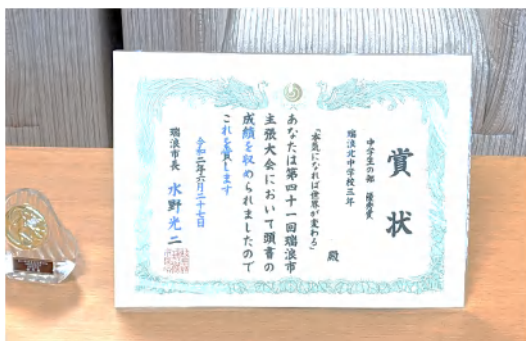 賞状
中学生の部 優秀賞
瑞浪北中学校三年
殿
「本気になれば世界が変わる」
あなたは第四十一回瑞浪市
主張大会において頭書の
成績を収められましたので
これを賞します
令和二年六月二十七日
瑞浪市長 水野光二